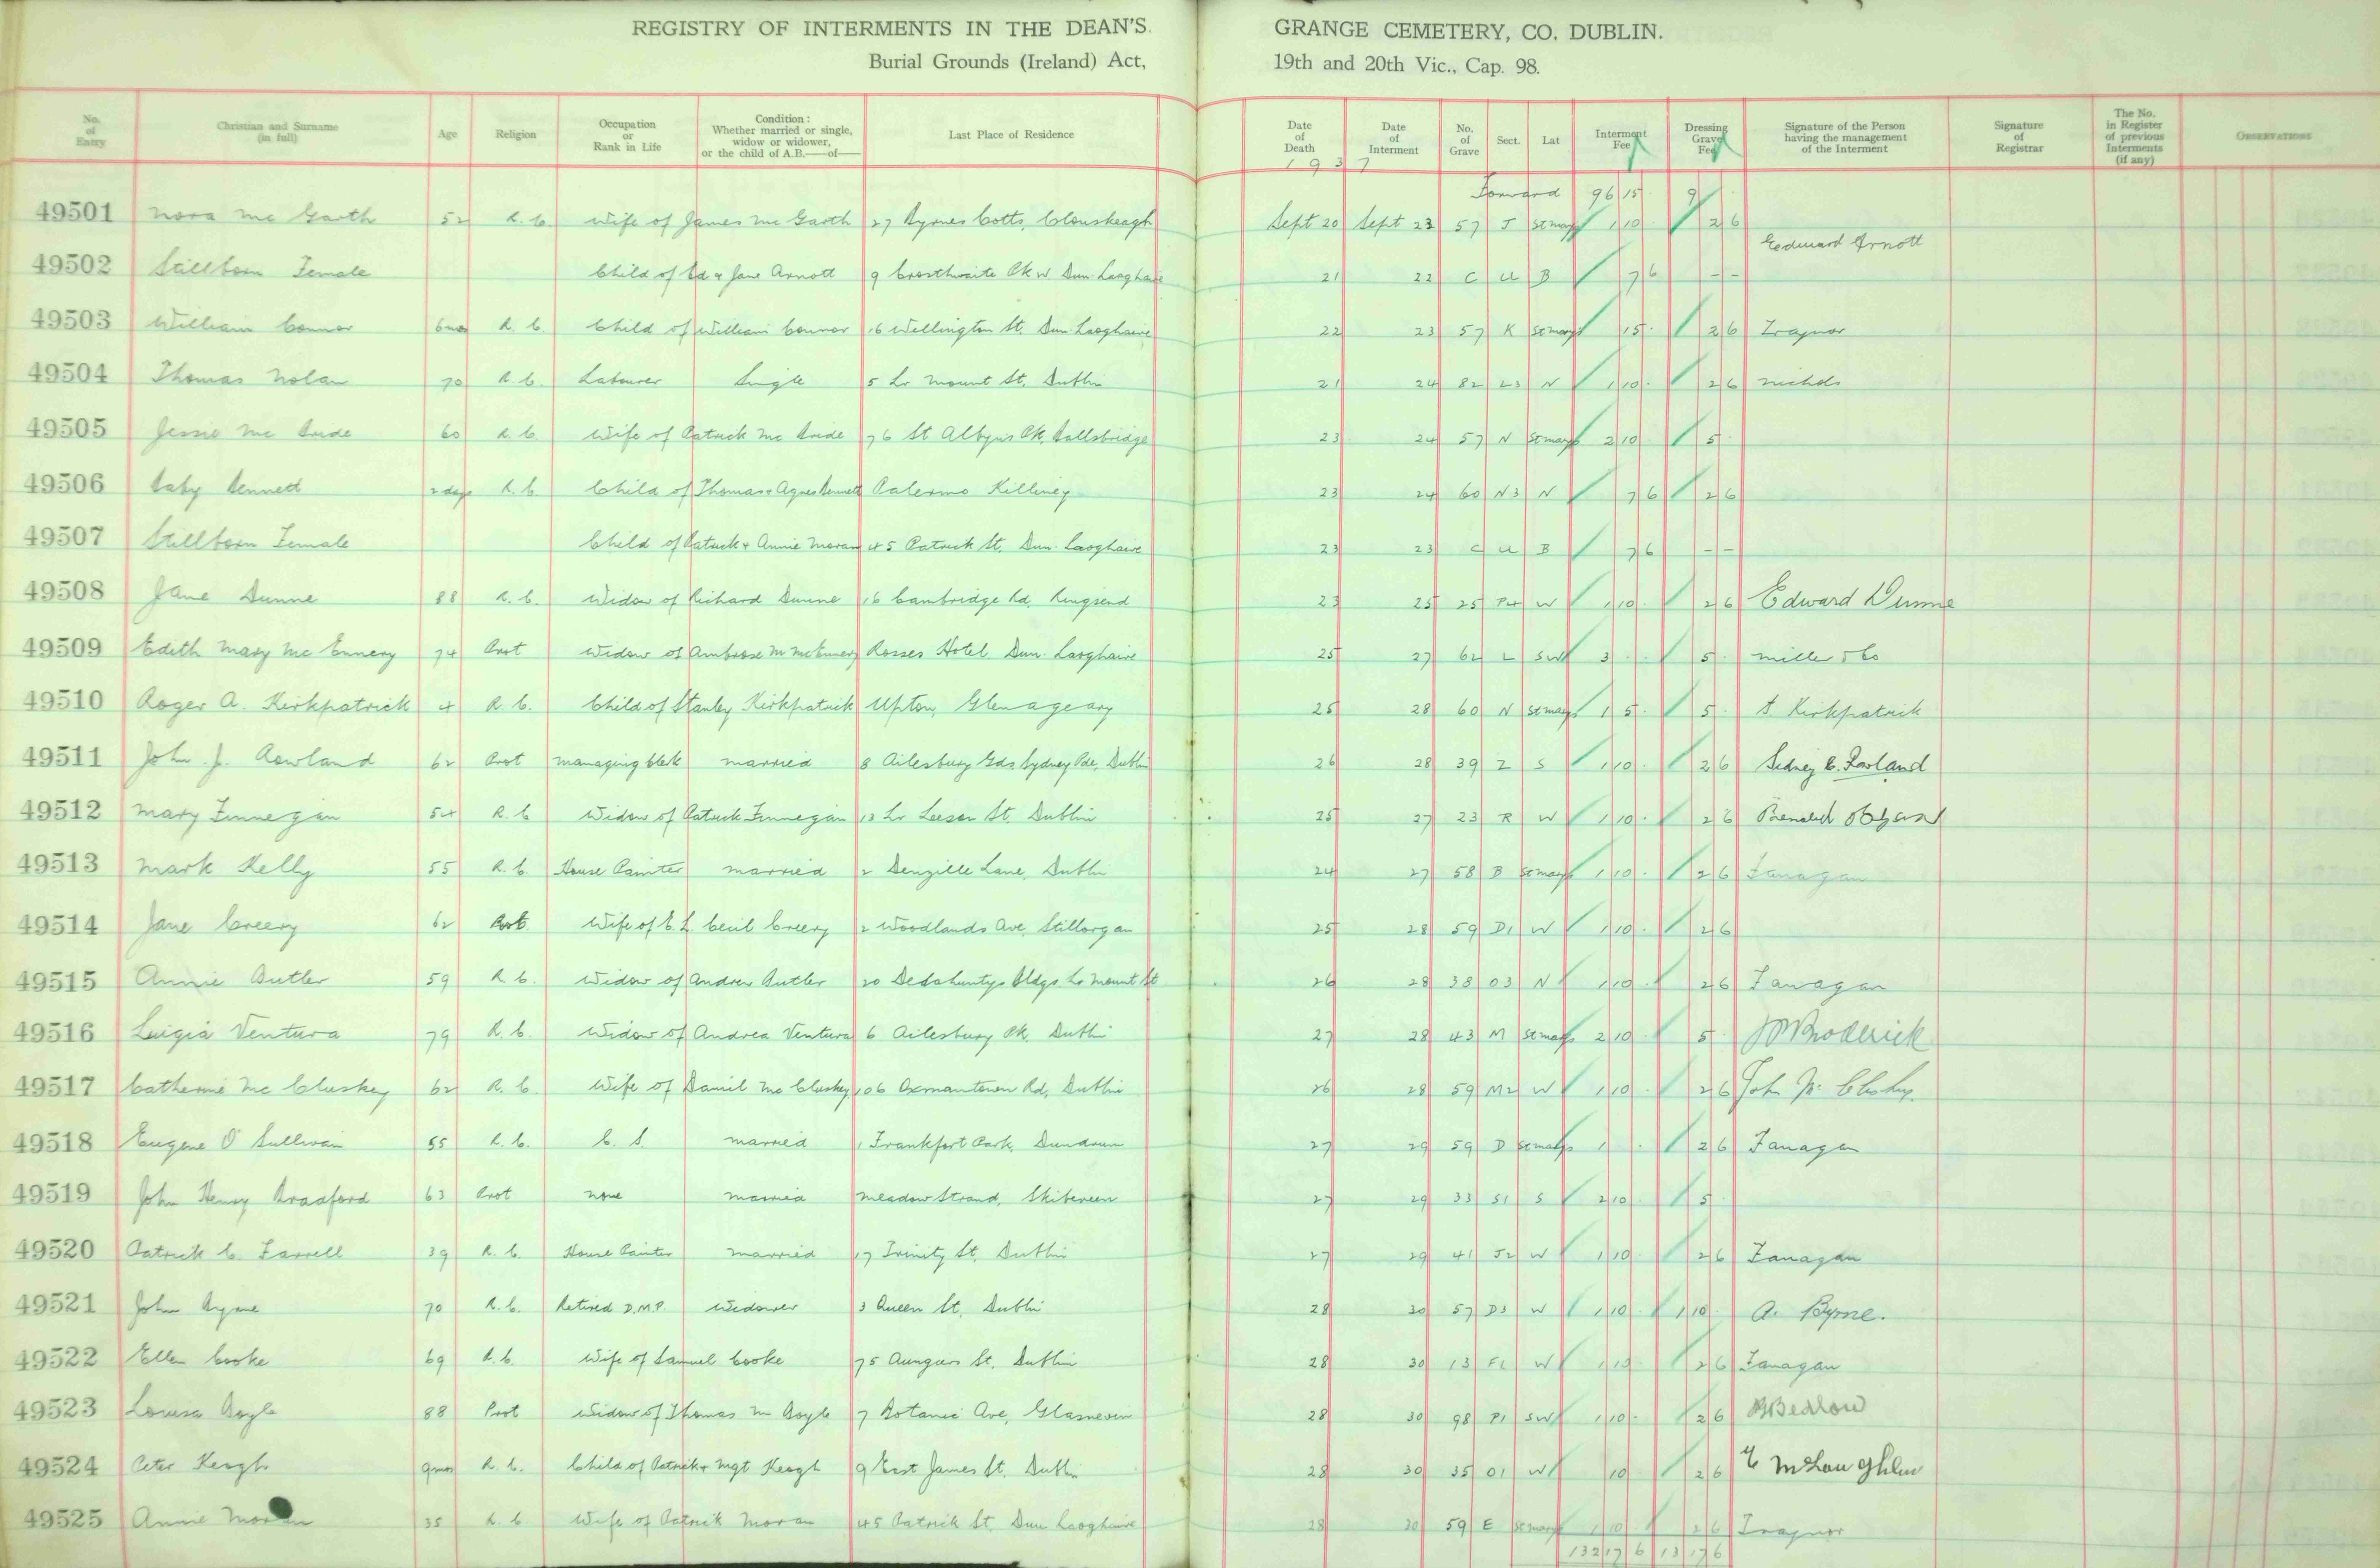 REGISTRY OF INTERMENTS IN THE DEAN'S GRANGE CEMETERY, CO. DUBLIN.
Burial Grounds (Ireland) Act, 19th and 20th Vic., Cap. 98.
No. of Entry | Christian and Surname (in full) | Age | Religion | Occupation or Rank in Life | Condition: Whether married or single, widow or widower, or the child of A.B.—of— | Last Place of Residence | Date of Death | Date of Interment | No. of Grave | Sect. | Lat | Interment Fee | Dressing Grave Fee | Signature of the Person having the management of the Interment | Signature of Registrar | The No. in Register of previous Interments (if any) | Observations
1937
Forward 96 15 9
49501 Nora Mc Garth 52 R.C. Wife of James Mc Garth 27 Byrnes Cotts, Clonskeagh Sept 20 Sept 23 57 J St Marys 1 10 2 6
49502 Stillborn Female Child of Ed & Jane Arnott 9 Crosthwaite Pk W Dun Laoghaire 21 22 C U B 7 6 - - Edward Arnott
49503 William Connor 6mos R.C. Child of William Connor 16 Wellington St. Dun Laoghaire 22 23 57 K St Marys 15 2 6 Traynor
49504 Thomas Nolan 70 R.C. Labourer Single 5 Lr Mount St, Dublin 21 24 82 L3 N 1 10 2 6 Nichols
49505 Jessie Mc Bride 60 R.C. Wife of Patrick Mc Bride 76 St Pk, Ballsbridge 23 24 57 N St Marys 2 10 5
49506 Baby Bennett 2 days R.C. Child of Thomas & Agnes Bennett Palermo Killiney 23 24 60 N3 N 7 6 2 6
49507 Stillborn Female Child of Patrick & Annie Moran 45 Patrick St, Dun Laoghaire 23 23 C U B 7 6 - -
49508 Jane Dunne 88 R.C. Widow of Richard Dunne 16 Cambridge Rd, Ringsend 23 25 25 P4 W 1 10 2 6 Edward Dunne
49509 Edith Mary Mc Ennery 74 Prot Widow of Ambrose M McEnnery Rosses Hotel Dun Laoghaire 25 27 62 L SW 3 5 Miller & Co
49510 Roger A. Kirkpatrick 4 R.C. Child of Stanley Kirkpatrick Upton, Glenageary 25 28 60 N St Marys 1 5 5 S. Kirkpatrick
49511 John J. Rowland 62 Prot Managing Clerk Married 8 Ailesbury Gds Sydney Pde, Dublin 26 28 39 Z S 1 10 2 6 Sidney C. Rowland
49512 Mary Finnegan 54 R.C. Widow of Patrick Finnegan 13 Lr Leeson St. Dublin 25 27 23 R W 1 10 2 6
49513 Mark Kelly 55 R.C. House Painter Married 2 Denzille Lane, Dublin 24 27 58 B St Marys 1 10 2 6 Fanagan
49514 Jane Creery 62 Prot. Wife of C. L. Cecil Creery 2 Woodlands Ave, Stillorgan 25 28 59 D1 W 1 10 2 6
49515 Annie Butler 59 R.C. Widow of Andrew Butler 20 Bldgs. Lr Mount St 26 28 38 O3 N 1 10 2 6 Fanagan
49516 Luigia Ventura 79 R.C. Widow of Andrea Ventura 6 Ailesbury Pk, Dublin 27 28 43 M St Marys 2 10 5 Broderick
49517 Catherine Mc Cluskey 62 R.C. Wife of Daniel Mc Cluskey 106 Oxmantown Rd, Dublin 26 28 59 M2 W 1 10 2 6 John Mc Clusky
49518 Eugene O'Sullivan 55 R.C. C. S. Married 1 Frankfort Park, Dundrum 27 29 59 D St Marys 1 2 6 Fanagan
49519 John Henry Bradford 63 Prot None Married Meadow Strand, Skibereen 27 29 33 S1 S 2 10 5
49520 Patrick C. Farrell 39 R.C. House Painter Married 17 Trinity St, Dublin 27 29 41 J2 W 1 10 2 6 Fanagan
49521 John Byrne 70 R.C. Retired D.M.P. Widower 3 Queen St, Dublin 28 30 57 D3 W 1 10 1 10 A. Byrne.
49522 Ellen Cooke 69 R.C. Wife of Samuel Cooke 75 Aungier St. Dublin 28 30 13 F2 W 1 10 2 6 Fanagan
49523 Louisa Boyle 88 Prot Widow of Thomas M Boyle 7 Botanic Ave, Glasnevin 28 30 98 P1 SW 1 10 2 6 Bedlow
49524 Peter Keogh 9mos R.C. Child of Patrick & Mgt Keogh 9 East James St. Dublin 28 30 35 O1 W 10 2 6 E McLoughlin
49525 Annie Moran 35 R.C. Wife of Patrick Moran 45 Patrick St. Dun Laoghaire 28 30 59 E St Marys 1 10 2 6 Traynor
132 17 6 13 17 6